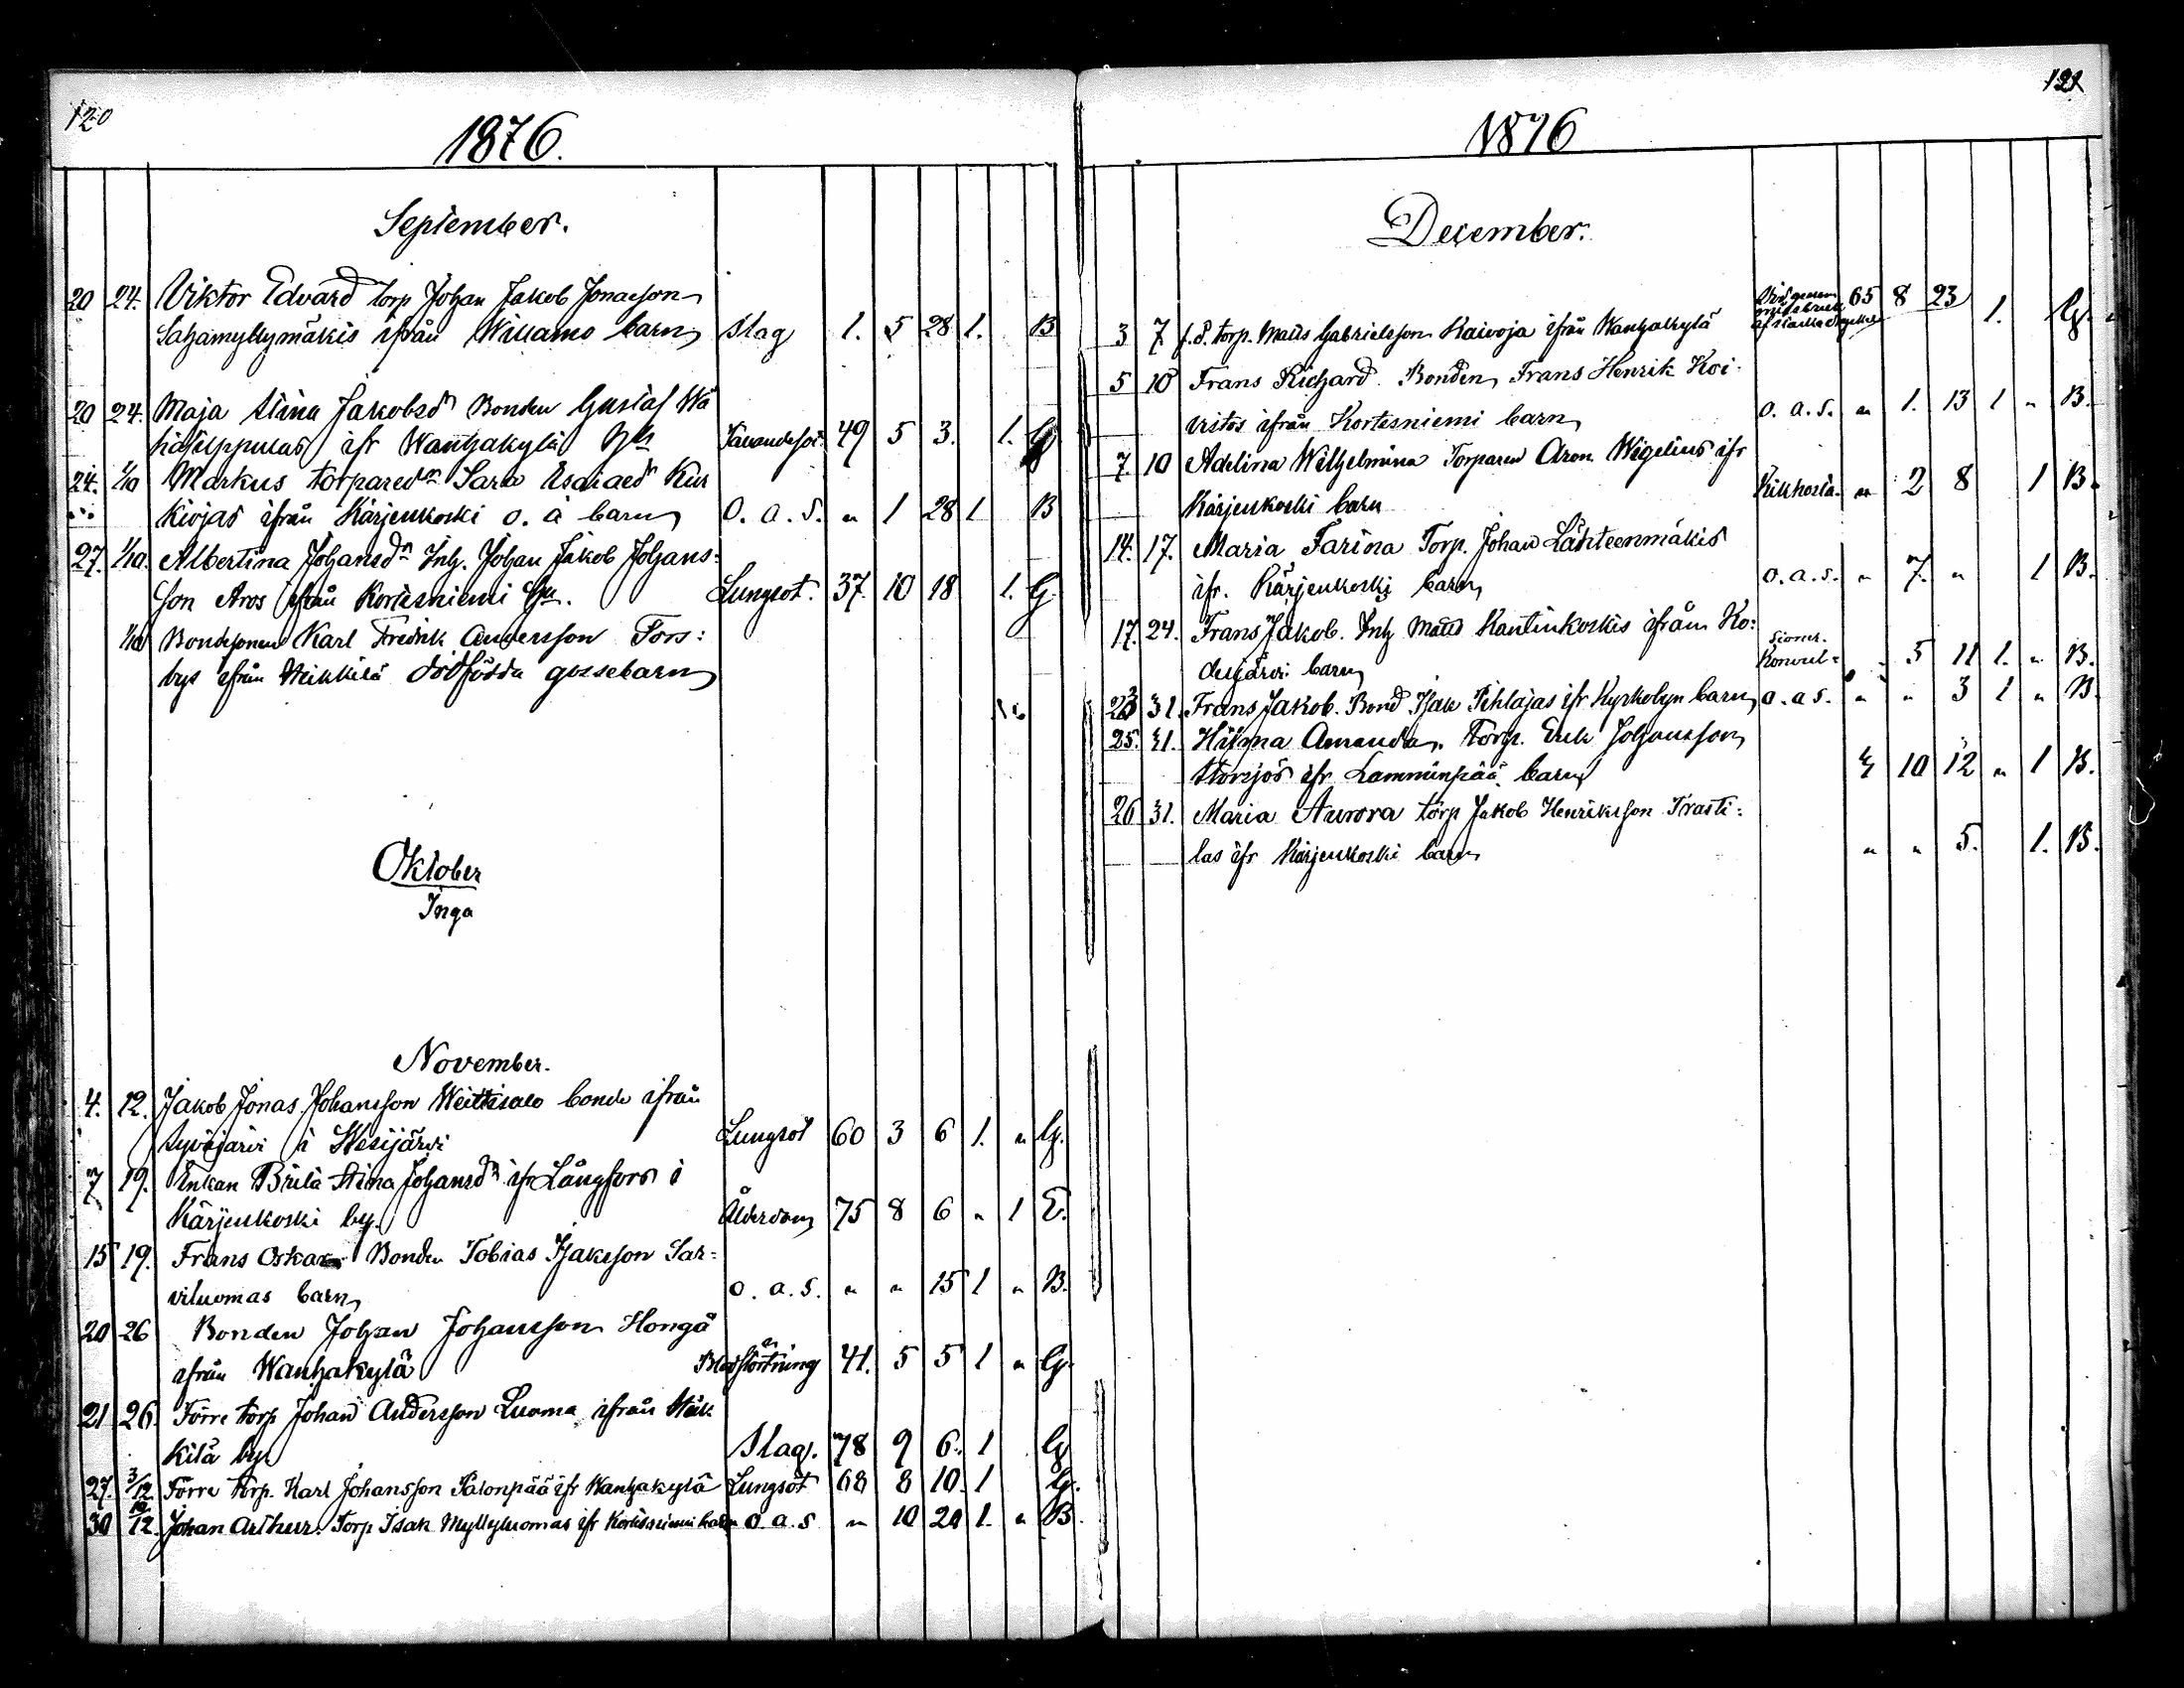 120
1876.
September.
20 24. Viktor Edvard torp Johan Jakob Jonasson
Sahamyllymäkis ifrån Willamo barn Slag 1. 5 28 1. B
20 24. Maja Stina Jakobsdr Bonden Gustaf Wä
häfilppulas ifr Wanhakylä 49 5 3. 1. G
24. 1/10 Markus torparedr Sara Esaiaedr Kur
kiojas ifrån Kärjenkoski o. ä barn O. a. S. " 1 28 1 B
27. 1/10. Albertina Johansdr Inh. Johan Jakob Johans:
son Aros ifrån Kortesniemi Lungsot. 37. 10 18 1. G.
1/10 Bondesonen Karl Fredrik Andersson Fors:
bys ifrån Heikkilä dödfödda gossebarn
Oktober
Inga
November.
4. 12. Jakob Jonas Johansson Weittisalo bonde ifrån
Syväjärvi i Wesijärvi Lungsot 60 3 6 1. " G.
7 19. Enkan Brita Stina Johansdr ifr Långfors i
Kärjenkoski by. Ålderdom 75 8 6 " 1 E.
15 19. Frans Oskar Bonden Tobias Isaksson Sar=
viluomas barn O. a. S. " " 15 1 " B.
20 26 Bonden Johan Johansson Hongä
ifrån Wanhakylä Blodstörtning 41. 5 5 1 " G.
21 26. Förre torp Johan Andersson Luoma ifrån Heik
kilä by. Slag. 78 9 6. 1 G
27. 3/12 Förre torp. Karl Johansson Salonpää ifr Wanhakylä Lungsot 68 8 10. 1 G.
30 10/12. Johan Arthur. Torp Isak Myllyluomas ifr Kortesniemi barn o. a. s " 10 20 1. " B.
121
1876
December.
3 7 f. d. torp. Matts Gabrielsson Kaivoja ifrån Wanhakylä 65 8 23 1. G.
5 10 Frans Richard. Bonden Frans Henrik Koi
vistos ifrån Kortesniemi barn O. a. s. " 1. 13 1 " B.
7. 10 Adelina Wilhelmina Torparen Aron Wigelius ifr
Kärjenkoski barn Kikhosta. " 2 8 1 B.
14. 17. Maria Farina Torp. Johan Lähteenmäkis
ifr. Kärjenkoski barn o. a. s. " 7. " 1 B.
17. 24. Frans Jakob. Inh Matts Kantinkoskis ifrån Ko:
desjärvi barn Konvul= 5 11 1. " B.
23 31. Frans Jakob. Bond Isak Pihlajas ifr Kyrkobyn barn o. a s. " " 3 1 " B
25. 31. Hilma Amanda. Torp. Erik Johansson
Storsjös ifr Lamminpää barn 10 12 " 1 B.
26 31. Maria Aurora torp Jakob Henriksson Trasti:
las ifr Kärjenkoski barn " " 5. 1. B.